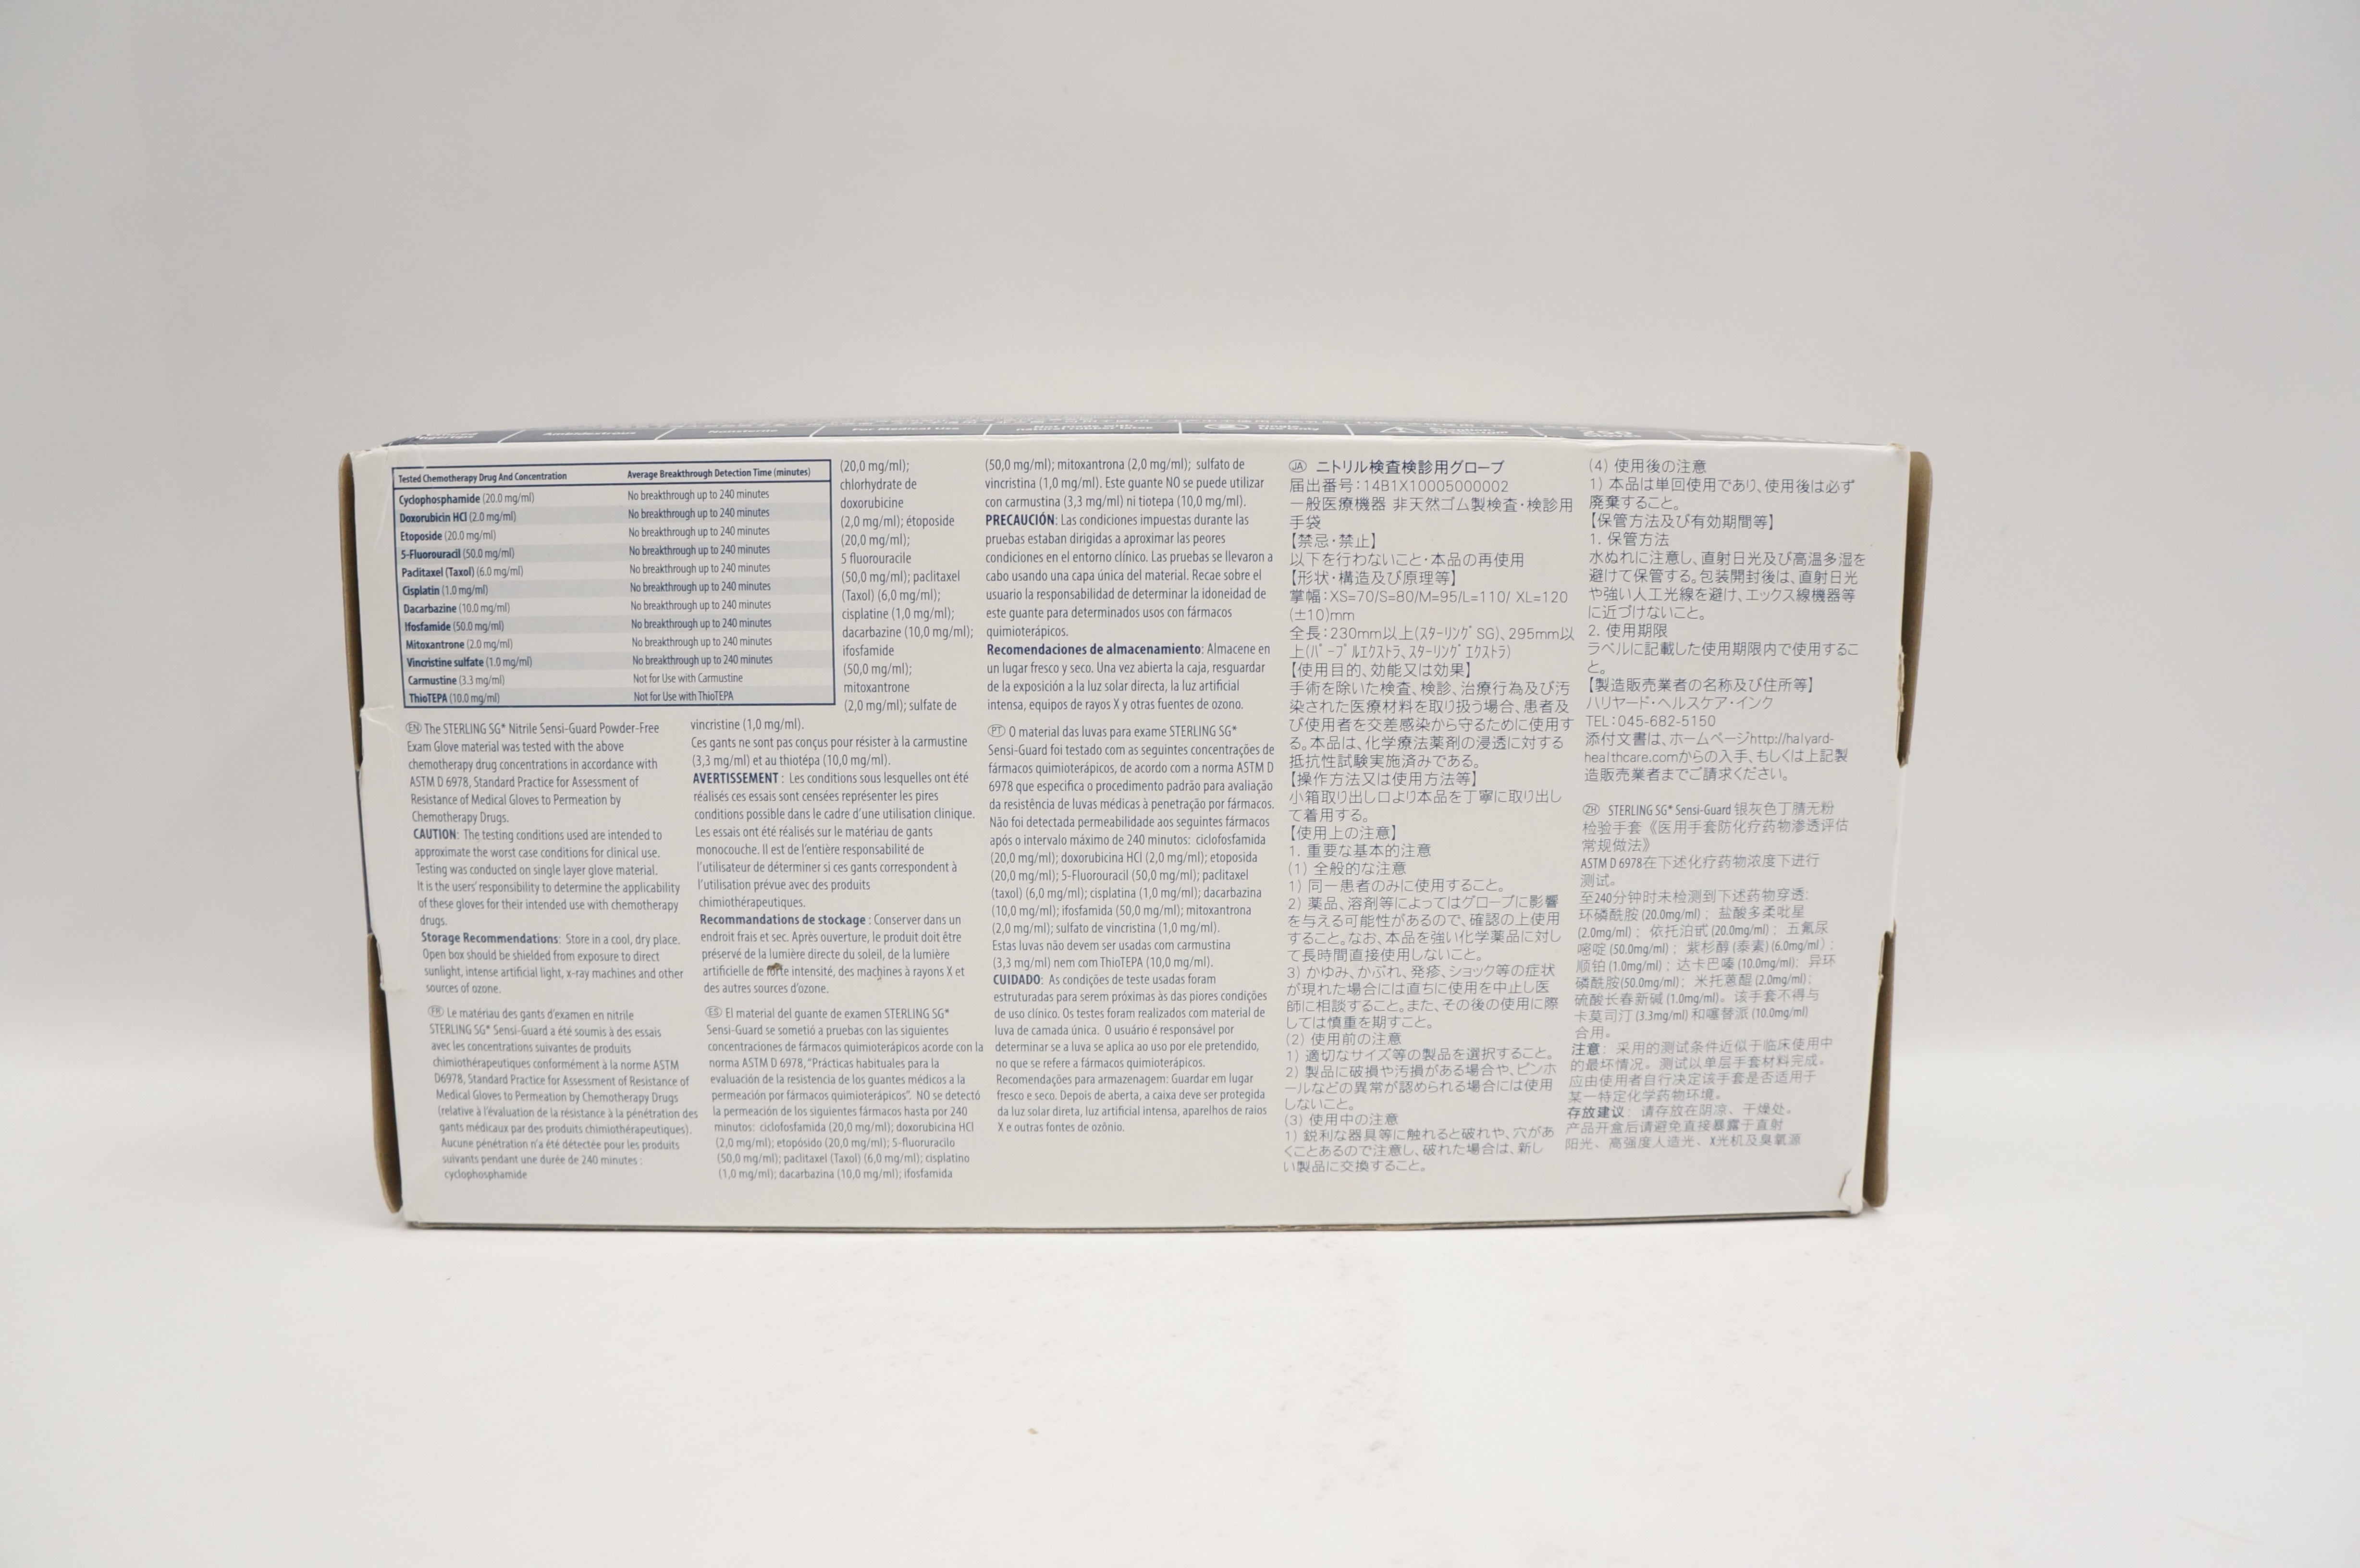 Ambidextrous
Nonsterile
For Medical Use
Tested Chemotherapy Drug And Concentration Average Breakthrough Detection Time (minutes)
Cyclophosphamide (20.0 mg/ml) No breakthrough up to 240 minutes
Doxorubicin HCl (2.0 mg/ml) No breakthrough up to 240 minutes
Etoposide (20.0 mg/ml) No breakthrough up to 240 minutes
5-Fluorouracil (50.0 mg/ml) No breakthrough up to 240 minutes
Paclitaxel (Taxol) (6.0 mg/ml) No breakthrough up to 240 minutes
Cisplatin (1.0 mg/ml) No breakthrough up to 240 minutes
Dacarbazine (10.0 mg/ml) No breakthrough up to 240 minutes
Ifosfamide (50.0 mg/ml) No breakthrough up to 240 minutes
Mitoxantrone (2.0 mg/ml) No breakthrough up to 240 minutes
Vincristine sulfate (1.0 mg/ml) No breakthrough up to 240 minutes
Carmustine (3.3 mg/ml) Not for Use with Carmustine
ThioTEPA (10.0 mg/ml) Not for Use with ThioTEPA
EN The STERLING SG* Nitrile Sensi-Guard Powder-Free
Exam Glove material was tested with the above
chemotherapy drug concentrations in accordance with
ASTM D 6978, Standard Practice for Assessment of
Resistance of Medical Gloves to Permeation by
Chemotherapy Drugs.
CAUTION: The testing conditions used are intended to
approximate the worst case conditions for clinical use.
Testing was conducted on single layer glove material.
It is the users' responsibility to determine the applicability
of these gloves for their intended use with chemotherapy
drugs.
Storage Recommendations: Store in a cool, dry place.
Open box should be shielded from exposure to direct
sunlight, intense artificial light, x-ray machines and other
sources of ozone.
FR Le matériau des gants d'examen en nitrile
STERLING SG* Sensi-Guard a été soumis à des essais
avec les concentrations suivantes de produits
chimiothérapeutiques conformément à la norme ASTM
D6978, Standard Practice for Assessment of Resistance of
Medical Gloves to Permeation by Chemotherapy Drugs
(relative à l'évaluation de la résistance à la pénétration des
gants médicaux par des produits chimiothérapeutiques).
Aucune pénétration n'a été détectée pour les produits
suivants pendant une durée de 240 minutes :
cyclophosphamide
(20,0 mg/ml);
chlorhydrate de
doxorubicine
(2,0 mg/ml); étoposide
(20,0 mg/ml);
5 fluorouracile
(50,0 mg/ml); paclitaxel
(Taxol) (6,0 mg/ml);
cisplatine (1,0 mg/ml);
dacarbazine (10,0 mg/ml);
ifosfamide
(50,0 mg/ml);
mitoxantrone
(2,0 mg/ml); sulfate de
vincristine (1,0 mg/ml).
Ces gants ne sont pas conçus pour résister à la carmustine
(3,3 mg/ml) et au thiotépa (10,0 mg/ml).
AVERTISSEMENT : Les conditions sous lesquelles ont été
réalisés ces essais sont censées représenter les pires
conditions possible dans le cadre d'une utilisation clinique.
Les essais ont été réalisés sur le matériau de gants
monocouche. Il est de l'entière responsabilité de
l'utilisateur de déterminer si ces gants correspondent à
l'utilisation prévue avec des produits
chimiothérapeutiques.
Recommandations de stockage : Conserver dans un
endroit frais et sec. Après ouverture, le produit doit être
préservé de la lumière directe du soleil, de la lumière
artificielle de forte intensité, des machines à rayons X et
des autres sources d'ozone.
ES El material del guante de examen STERLING SG*
Sensi-Guard se sometió a pruebas con las siguientes
concentraciones de fármacos quimioterápicos acorde con la
norma ASTM D 6978, "Prácticas habituales para la
evaluación de la resistencia de los guantes médicos a la
permeación por fármacos quimioterápicos". NO se detectó
la permeación de los siguientes fármacos hasta por 240
minutos: ciclofosfamida (20,0 mg/ml); doxorubicina HCl
(2,0 mg/ml); etopósido (20,0 mg/ml); 5-fluoruracilo
(50,0 mg/ml); paclitaxel (Taxol) (6,0 mg/ml); cisplatino
(1,0 mg/ml); dacarbazina (10,0 mg/ml); ifosfamida
(50,0 mg/ml); mitoxantrona (2,0 mg/ml); sulfato de
vincristina (1,0 mg/ml). Este guante NO se puede utilizar
con carmustina (3,3 mg/ml) ni tiotepa (10,0 mg/ml).
PRECAUCIÓN: Las condiciones impuestas durante las
pruebas estaban dirigidas a aproximar las peores
condiciones en el entorno clínico. Las pruebas se llevaron a
cabo usando una capa única del material. Recae sobre el
usuario la responsabilidad de determinar la idoneidad de
este guante para determinados usos con fármacos
quimioterápicos.
Recomendaciones de almacenamiento: Almacene en
un lugar fresco y seco. Una vez abierta la caja, resguardar
de la exposición a la luz solar directa, la luz artificial
intensa, equipos de rayos X y otras fuentes de ozono.
PT O material das luvas para exame STERLING SG*
Sensi-Guard foi testado com as seguintes concentrações de
fármacos quimioterápicos, de acordo com a norma ASTM D
6978 que especifica o procedimento padrão para avaliação
da resistência de luvas médicas à penetração por fármacos.
Não foi detectada permeabilidade aos seguintes fármacos
após o intervalo máximo de 240 minutos: ciclofosfamida
(20,0 mg/ml); doxorubicina HCl (2,0 mg/ml); etoposida
(20,0 mg/ml); 5-Fluorouracil (50,0 mg/ml); paclitaxel
(taxol) (6,0 mg/ml); cisplatina (1,0 mg/ml); dacarbazina
(10,0 mg/ml); ifosfamida (50,0 mg/ml); mitoxantrona
(2,0 mg/ml); sulfato de vincristina (1,0 mg/ml).
Estas luvas não devem ser usadas com carmustina
(3,3 mg/ml) nem com ThioTEPA (10,0 mg/ml).
CUIDADO: As condições de teste usadas foram
estruturadas para serem próximas às das piores condições
de uso clínico. Os testes foram realizados com material de
luva de camada única. O usuário é responsável por
determinar se a luva se aplica ao uso por ele pretendido,
no que se refere a fármacos quimioterápicos.
Recomendações para armazenagem: Guardar em lugar
fresco e seco. Depois de aberta, a caixa deve ser protegida
da luz solar direta, luz artificial intensa, aparelhos de raios
X e outras fontes de ozônio.
JA ニトリル検査検診用グローブ
届出番号:14B1X10005000002
一般医療機器 非天然ゴム製検査・検診用
手袋
【禁忌・禁止】
以下を行わないこと・本品の再使用
【形状・構造及び原理等】
掌幅:XS=70/S=80/M=95/L=110/ XL=120
(±10)mm
全長:230mm以上(ｽﾀｰﾘﾝｸﾞSG)、295mm以
上(ﾊﾟｰﾌﾟﾙｴｸｽﾄﾗ、ｽﾀｰﾘﾝｸﾞｴｸｽﾄﾗ)
【使用目的、効能又は効果】
手術を除いた検査、検診、治療行為及び汚
染された医療材料を取り扱う場合、患者及
び使用者を交差感染から守るために使用す
る。本品は、化学療法薬剤の浸透に対する
抵抗性試験実施済みである。
【操作方法又は使用方法等】
小箱取り出し口より本品を丁寧に取り出し
て着用する。
【使用上の注意】
1. 重要な基本的注意
(1) 全般的な注意
1) 同一患者のみに使用すること。
2) 薬品、溶剤等によってはグローブに影響
を与える可能性があるので、確認の上使用
すること。なお、本品を強い化学薬品に対し
て長時間直接使用しないこと。
3) かゆみ、かぶれ、発疹、ショック等の症状
が現れた場合には直ちに使用を中止し医
師に相談すること。また、その後の使用に際
しては慎重を期すこと。
(2) 使用前の注意
1) 適切なサイズ等の製品を選択すること。
2) 製品に破損や汚損がある場合や、ピンホ
ールなどの異常が認められる場合には使用
しないこと。
(3) 使用中の注意
1) 鋭利な器具等に触れると破れや、穴があ
くことあるので注意し、破れた場合は、新し
い製品に交換すること。
(4) 使用後の注意
1) 本品は単回使用であり、使用後は必ず
廃棄すること。
【保管方法及び有効期間等】
1. 保管方法
水ぬれに注意し、直射日光及び高温多湿を
避けて保管する。包装開封後は、直射日光
や強い人工光線を避け、エックス線機器等
に近づけないこと。
2. 使用期限
ラベルに記載した使用期限内で使用するこ
と。
【製造販売業者の名称及び住所等】
ハリヤード・ヘルスケア・インク
TEL:045-682-5150
添付文書は、ホームページhttp://halyard-
healthcare.comからの入手、もしくは上記製
造販売業者までご請求ください。
ZH STERLING SG* Sensi-Guard 银灰色丁腈无粉
检验手套《医用手套防化疗药物渗透评估
常规做法》
ASTM D 6978在下述化疗药物浓度下进行
测试。
至240分钟时未检测到下述药物穿透:
环磷酰胺 (20.0mg/ml)；盐酸多柔吡星
(2.0mg/ml)；依托泊甙 (20.0mg/ml)；五氟尿
嘧啶 (50.0mg/ml)；紫杉醇 (泰素) (6.0mg/ml)；
顺铂 (1.0mg/ml)；达卡巴嗪 (10.0mg/ml)；异环
磷酰胺(50.0mg/ml)；米托蒽醌 (2.0mg/ml)；
硫酸长春新碱 (1.0mg/ml)。该手套不得与
卡莫司汀 (3.3mg/ml) 和噻替派 (10.0mg/ml)
合用。
注意：采用的测试条件近似于临床使用中
的最坏情况。测试以单层手套材料完成。
应由使用者自行决定该手套是否适用于
某一特定化学药物环境。
存放建议：请存放在阴凉、干燥处。
产品开盒后请避免直接暴露于直射
阳光、高强度人造光、X光机及臭氧源